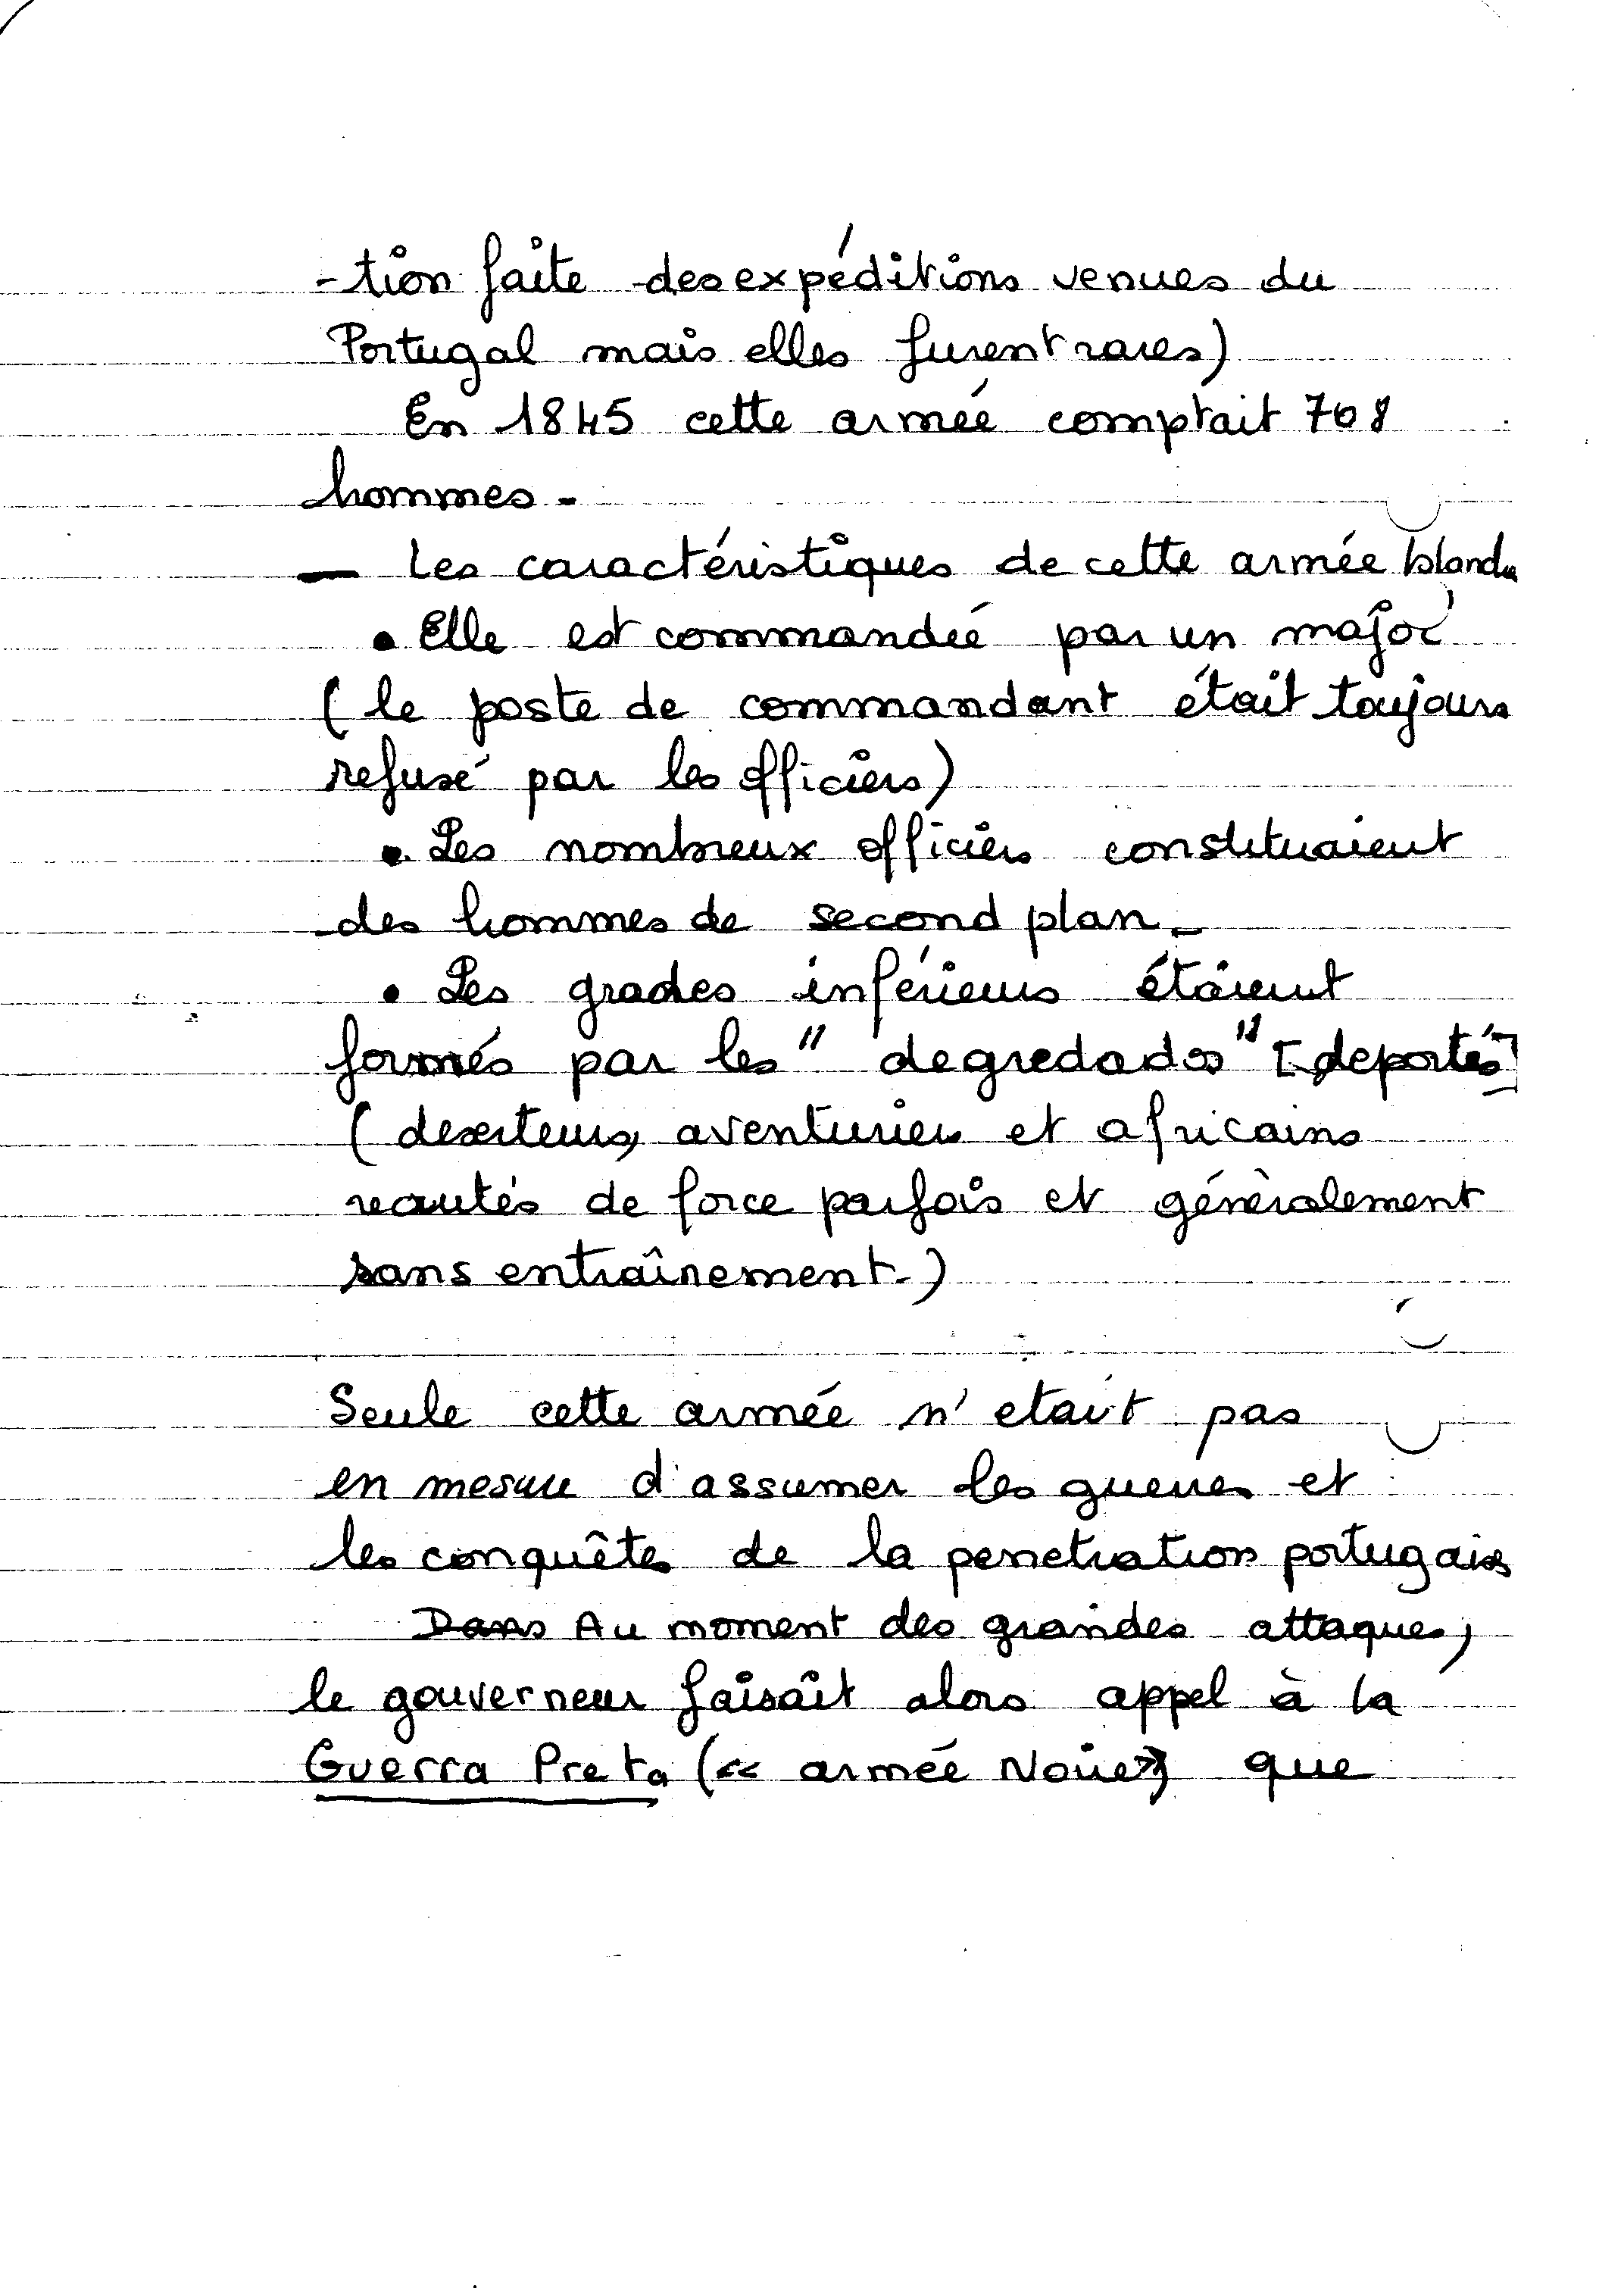 -tion faite des expéditions venues du
Portugal mais elles furent rares)
En 1845 cette armée comptait 708
hommes -
— Les caractéristiques de cette armée blanche
• Elle est commandée par un major
(le poste de commandant était toujours
refusé par les officiers)
• Les nombreux officiers constituaient
des hommes de second plan -
• Les grades inférieurs étaient
formés par les " degredados" [deportés]
(deserteurs, aventuriers et africains
recrutés de force parfois et généralement
sans entraînement.)
Seule cette armée n'etait pas
en mesure d'assumer les guerres et
les conquêtes de la penetration portugaise
Dans Au moment des grandes attaques,
le gouverneur faisait alors appel à la
Guerra Preta (« armée Noire») que